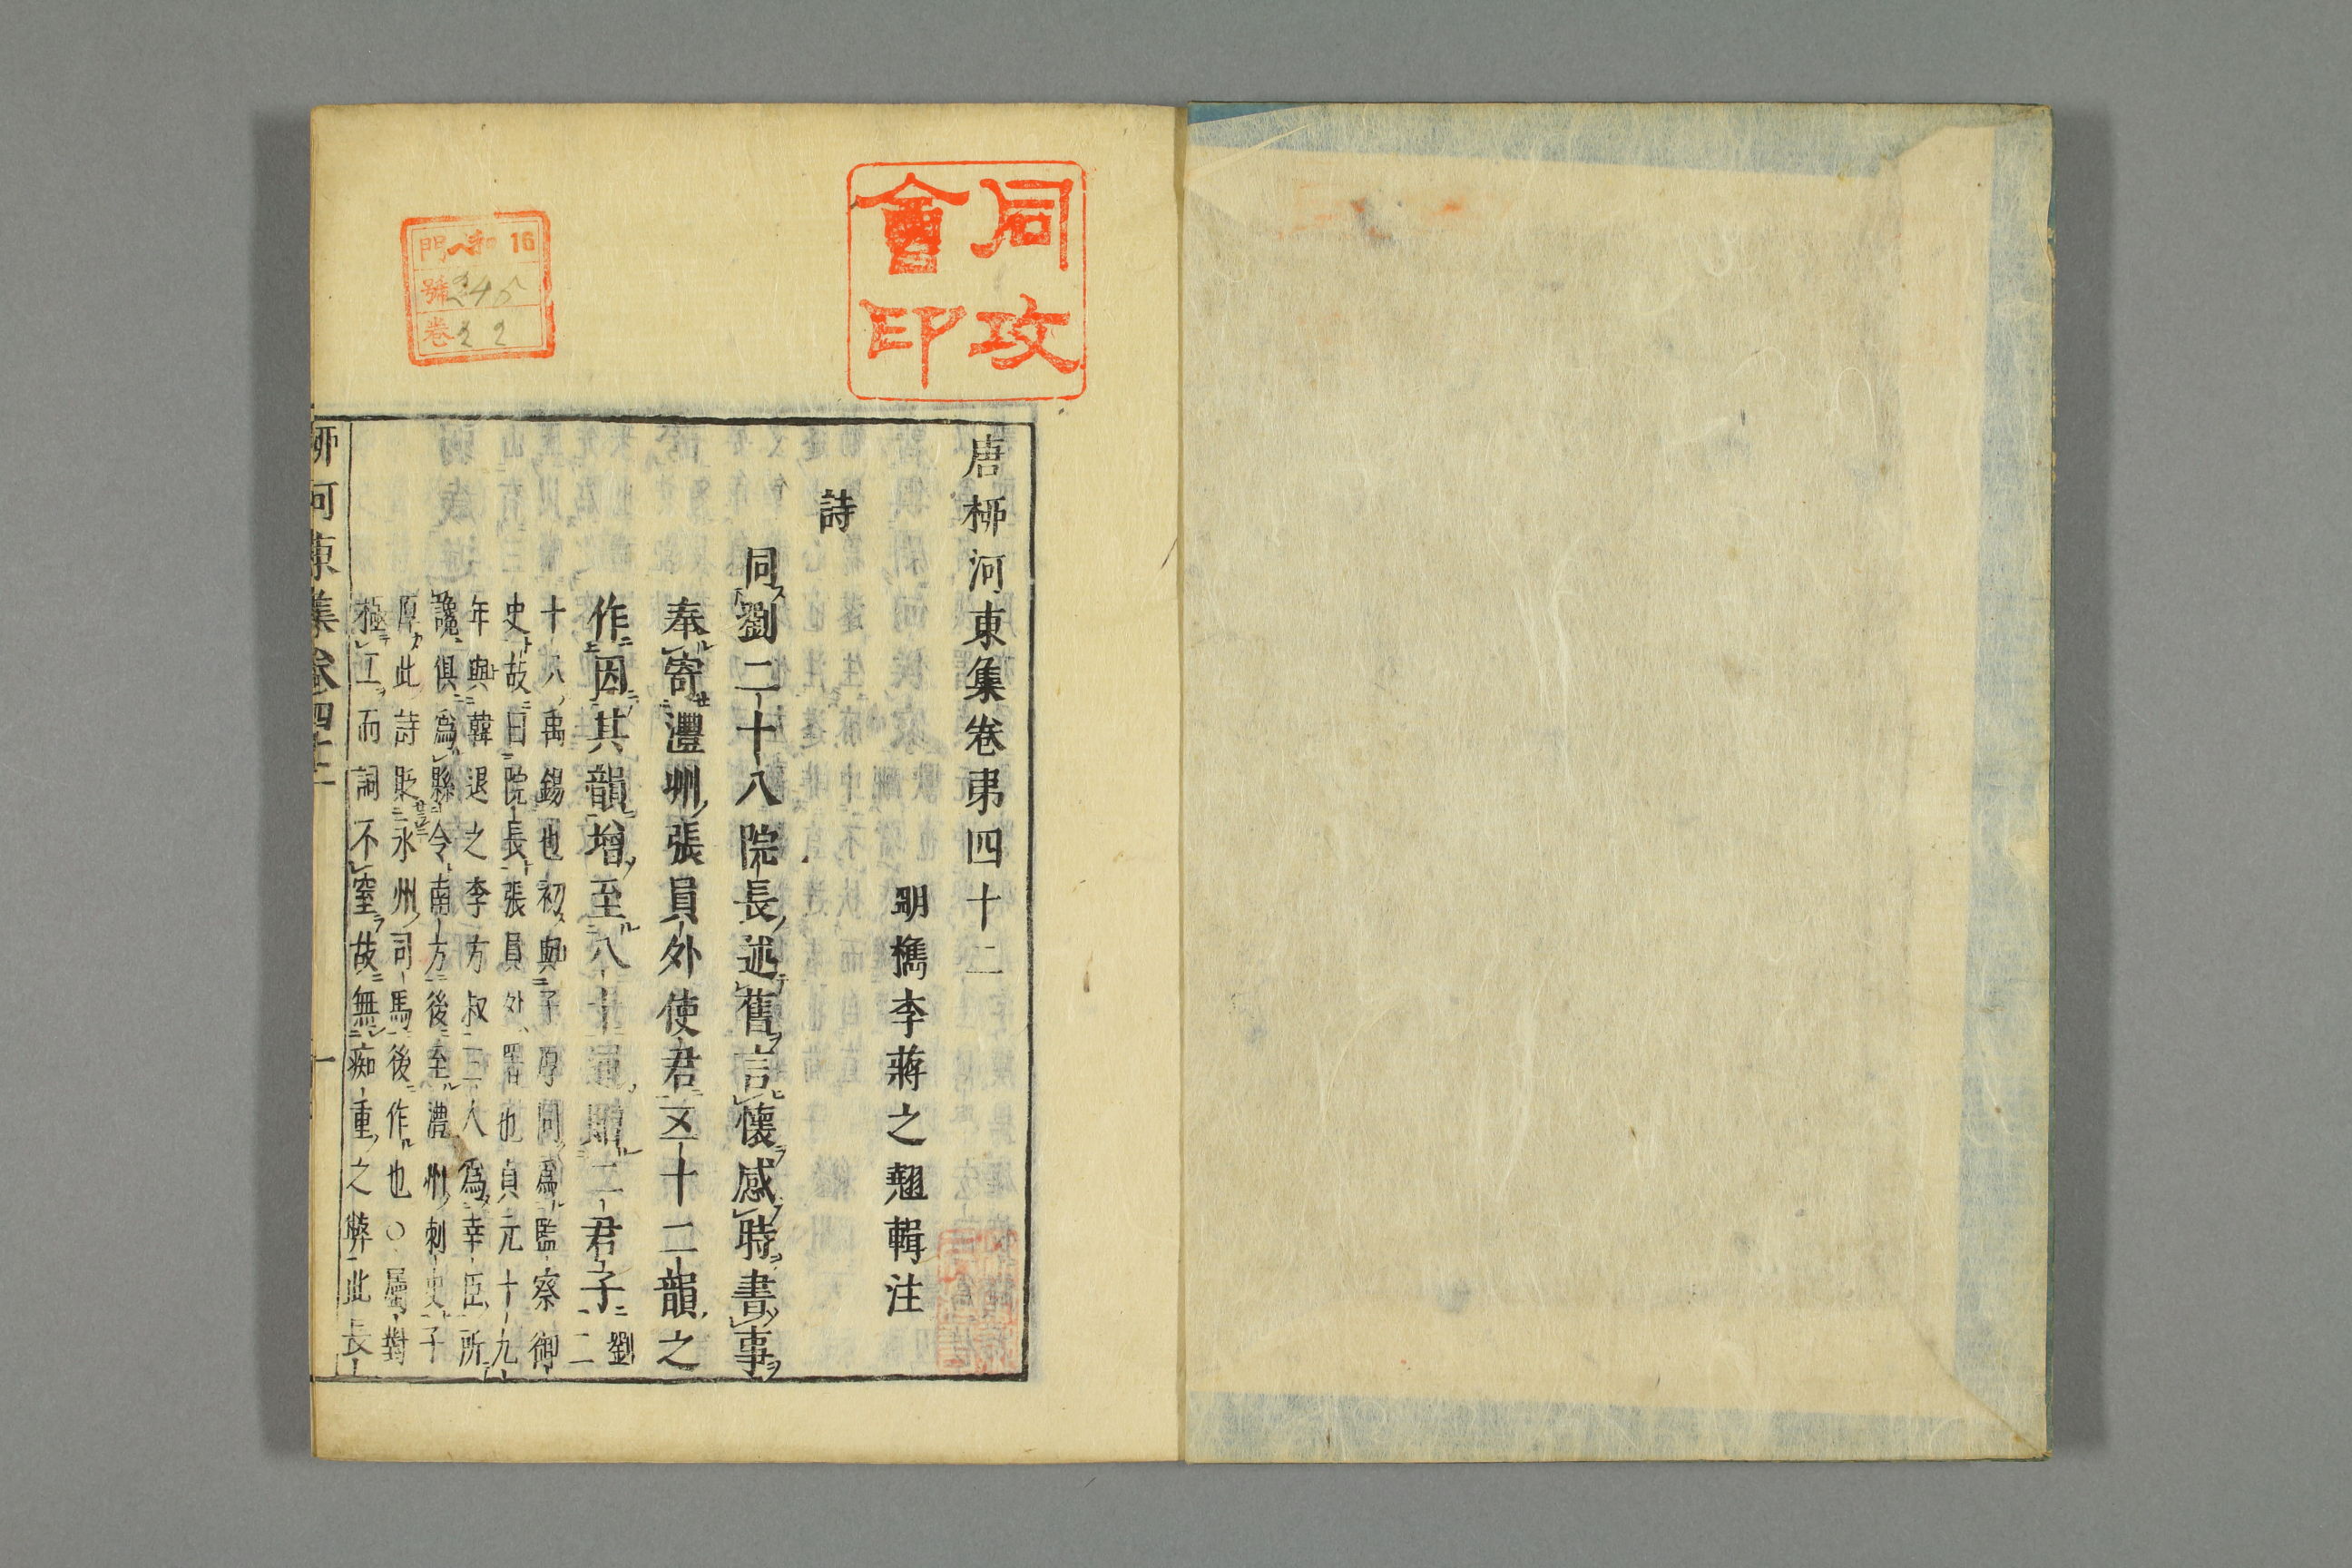 同攻
會印
門 16
號 245
卷 22
唐柳河東集卷第四十二
明檇李蔣之翹輯注
詩
同劉二十八院長述舊言懷感時書事
奉寄澧州張員外使君五十二韻之
作因其韻增至八十通贈二君子劉二
十八禹錫也初與子厚同為監察御
史故曰院長張員外署也貞元十九
年與韓退之李方叔三人爲幸臣所
讒俱爲縣令南方後至澧州刺史子
厚此詩貶永州司馬後作也○屬對
極工而詞不窒故無痴重之弊此長
柳河東集卷四十二 一